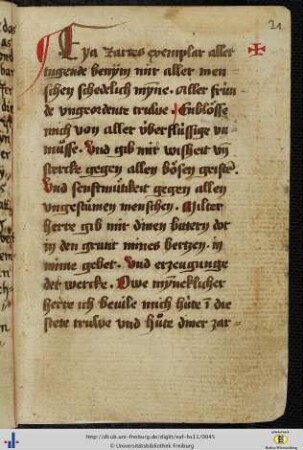 21
Eya zartes exemplar aller
tugende benÿm mir aller men
schen schedelich mÿne. Aller frün
de vngeordente truwe. Enblösse
mich von aller überflüssige vn
müsse. Vnd gib mir wisheit vn̄
stercke gegen allen bösen geiste.
Vnd senftmütikeit gegen allen
vngestümen menschen. Milter
herre gib mir dinen bittern dot
in den grunt mines hertzen. in
mine gebet. Vnd erzeugunge
der wercke. Owe mÿnecklicher
herre ich bevile mich hüte ī die
stete truwe vnd hůte diner zar-
http://dl.ub.uni-freiburg.de/diglit/sal-hs11/0045
© Universitätsbibliothek Freiburg